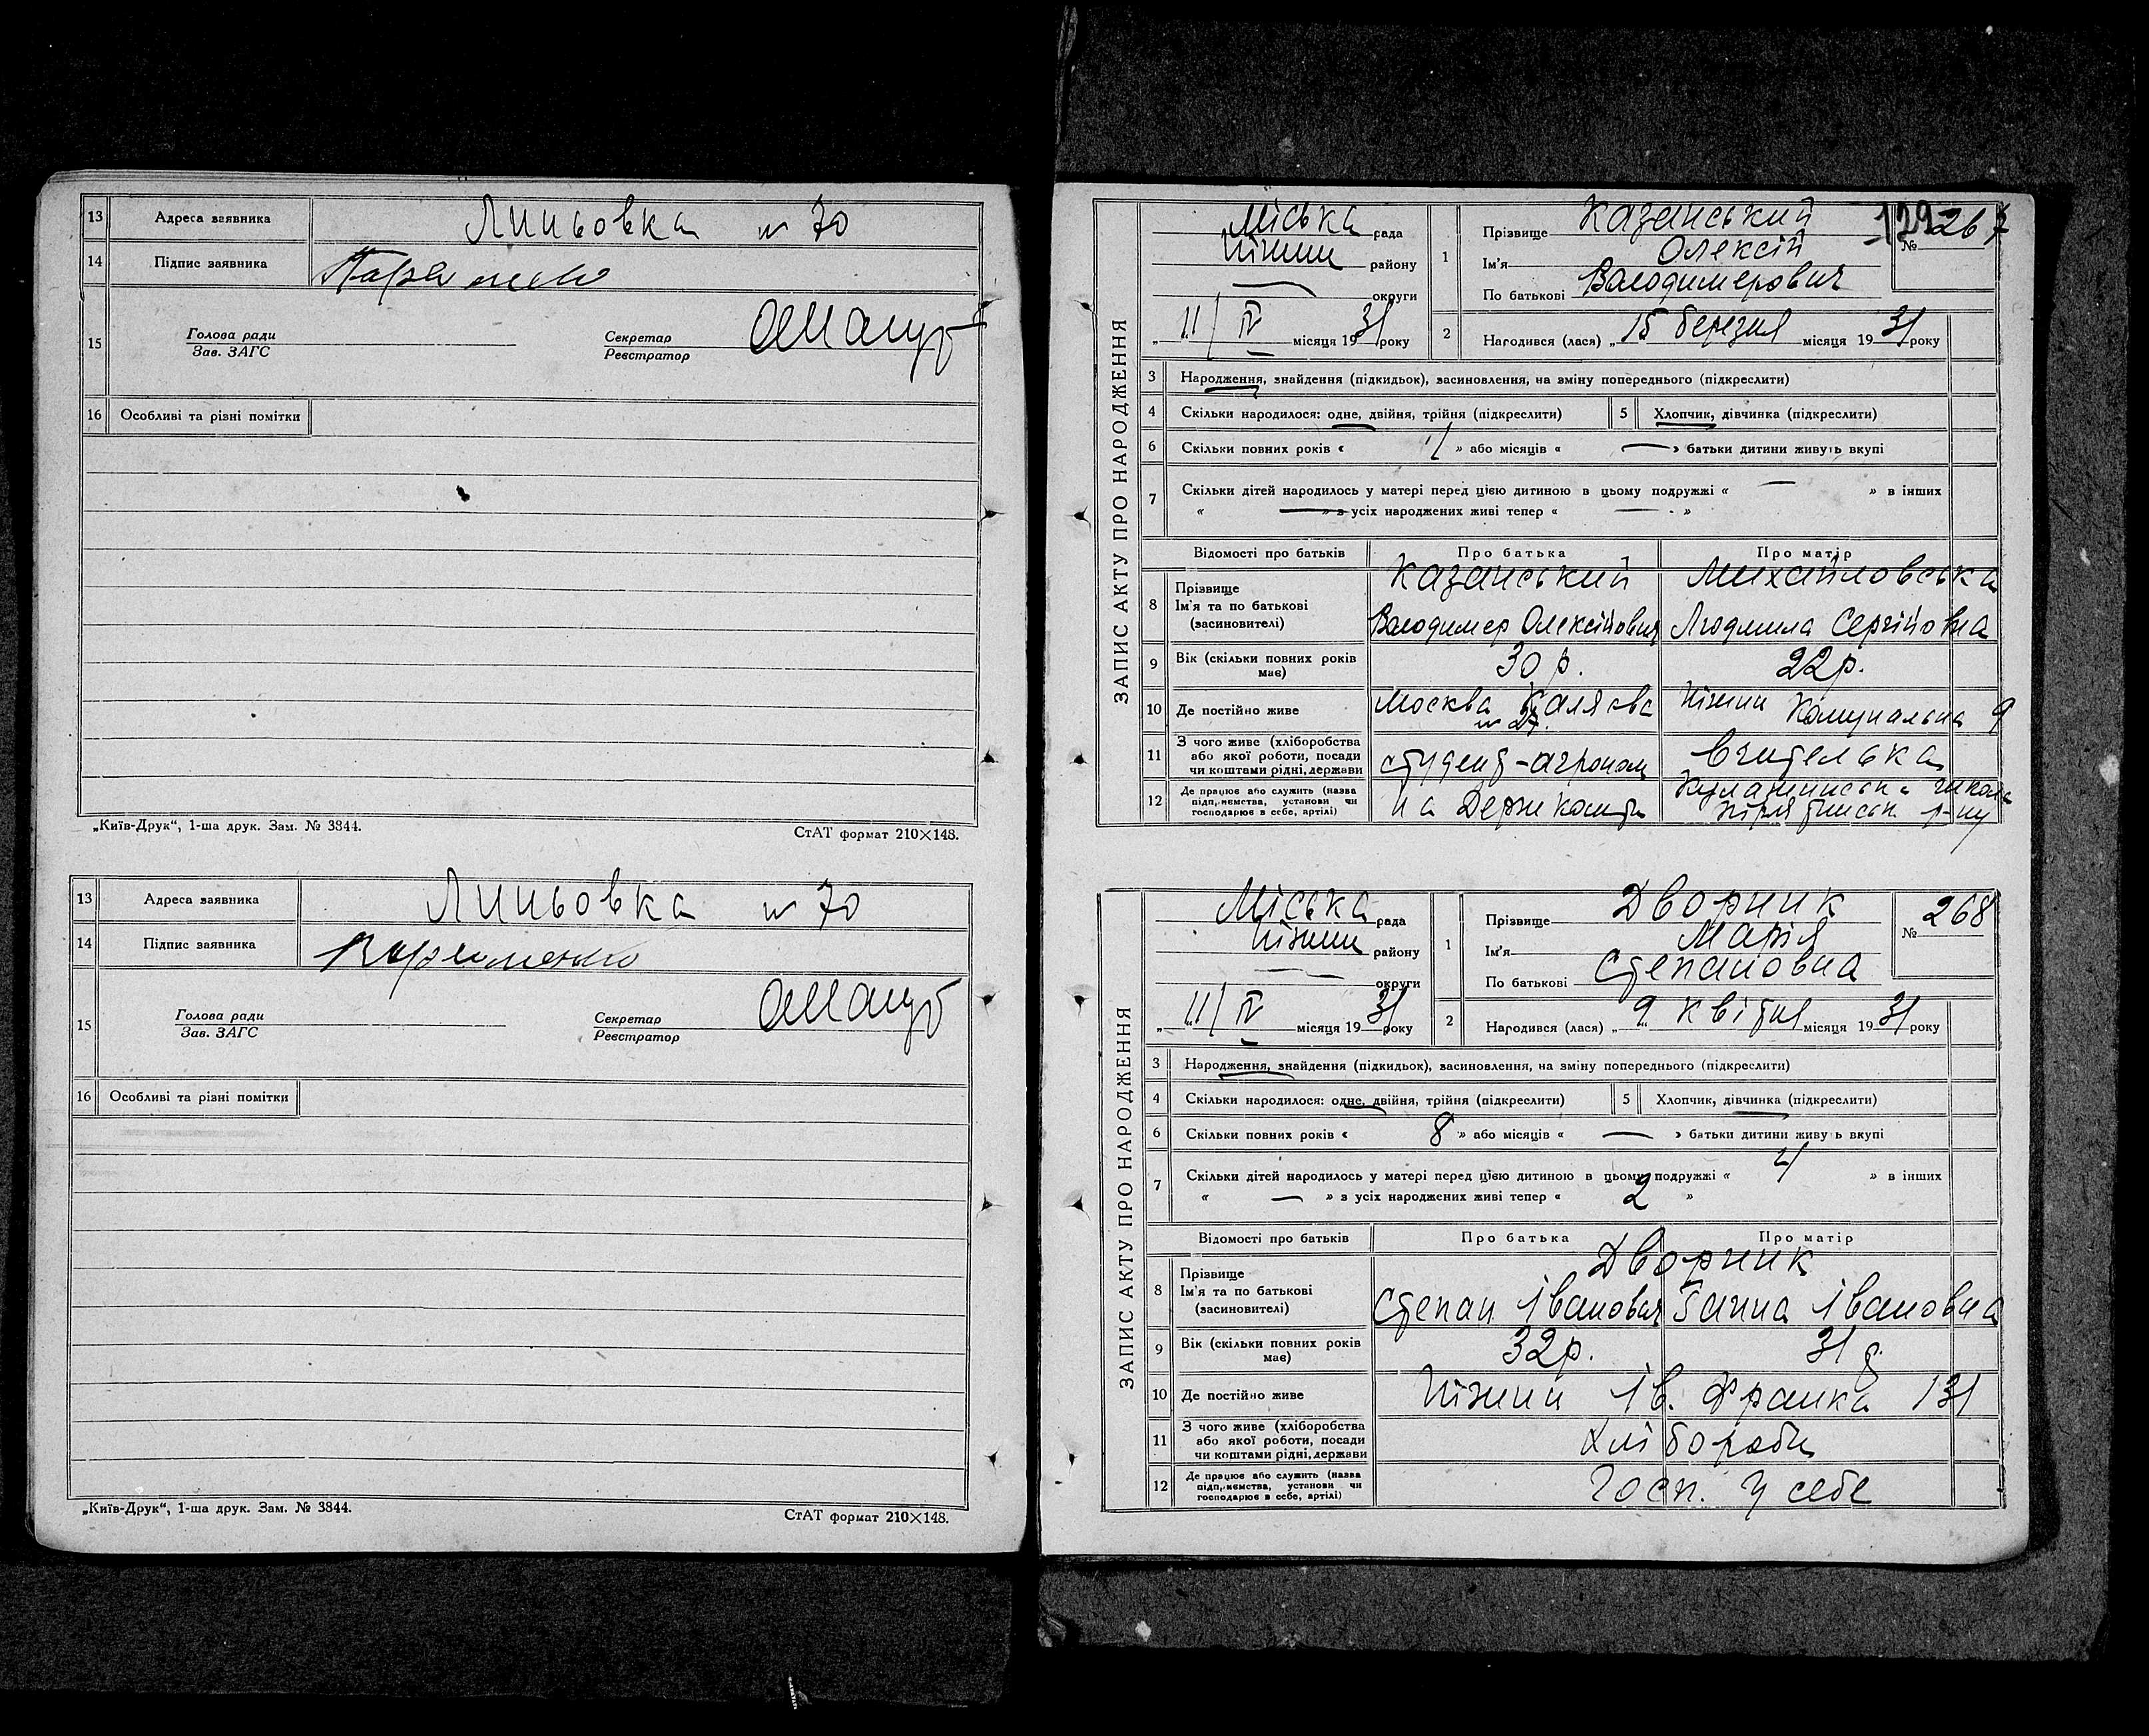 13 Адреса заявника Липьовка № 70
14 Підпис заявника
15 Голова ради
Зав. ЗАГС
Секретар
Реєстратор
16 Особливі та різні помітки
„Київ-Друк“, 1-ша друк. Зам. № 3844. СтАТ формат 210×148.
13 Адреса заявника Липьовка № 70
14 Підпис заявника
15 Голова ради
Зав. ЗАГС
Секретар
Реєстратор
16 Особливі та різні помітки
„Київ-Друк“, 1-ша друк. Зам. № 3844. СтАТ формат 210×148.
ЗАПИС АКТУ ПРО НАРОДЖЕННЯ
Міська рада
Ніжин району
округи
„ 11/IV місяця 1931 року
1 Прізвище Казанський
Ім'я Олексій
По батькові Володимерович
129
№ 267
2 Народився (лася) „ 15 березня місяця 1931 року
3 Народження, знайдення (підкидьок), засиновлення, на зміну попереднього (підкреслити)
4 Скільки народилося: одне, двійня, трійня (підкреслити) 5 Хлопчик, дівчинка (підкреслити)
6 Скільки повних років « 1 » або місяців « — » батьки дитини живуть вкупі
7 Скільки дітей народилось у матері перед цією дитиною в цьому подружжі « — » в інших
« — » з усіх народжених живі тепер « — »
Відомості про батьків Про батька Про матір
8 Прізвище Казанський Михайловська
Ім'я та по батькові
(засиновителі) Володимер Олексійович Людмила Сергійовна
9 Вік (скільки повних років має) 30 р. 22 р.
10 Де постійно живе Москва № 27. Ніжин Комунальна 9
11 З чого живе (хліборобства
або якої роботи, посади
чи коштами рідні, держави студент-агроном Вчителька
12 Де працює або служить (назва
підприємства, установи чи
господарює в себе, артілі) на Держ кошти школа р-ну
ЗАПИС АКТУ ПРО НАРОДЖЕННЯ
Міська рада
Ніжин району
округи
„ 11/IV місяця 1931 року
1 Прізвище Дворник
Ім'я Марія
По батькові Степановна
№ 268
2 Народився (лася) „ 9 квітня місяця 1931 року
3 Народження, знайдення (підкидьок), засиновлення, на зміну попереднього (підкреслити)
4 Скільки народилося: одне, двійня, трійня (підкреслити) 5 Хлопчик, дівчинка (підкреслити)
6 Скільки повних років « 8 » або місяців « — » батьки дитини живуть вкупі
7 Скільки дітей народилось у матері перед цією дитиною в цьому подружжі « 4 » в інших
« — » з усіх народжених живі тепер « 2 »
Відомості про батьків Про батька Про матір
8 Прізвище Дворник
Ім'я та по батькові
(засиновителі) Степан Іванович Ганна Івановна
9 Вік (скільки повних років має) 32 р. 31 р.
10 Де постійно живе Ніжин Ів. Франка 131
11 З чого живе (хліборобства
або якої роботи, посади
чи коштами рідні, держави хлібороби
12 Де працює або служить (назва
підприємства, установи чи
господарює в себе, артілі) Госп. у себе